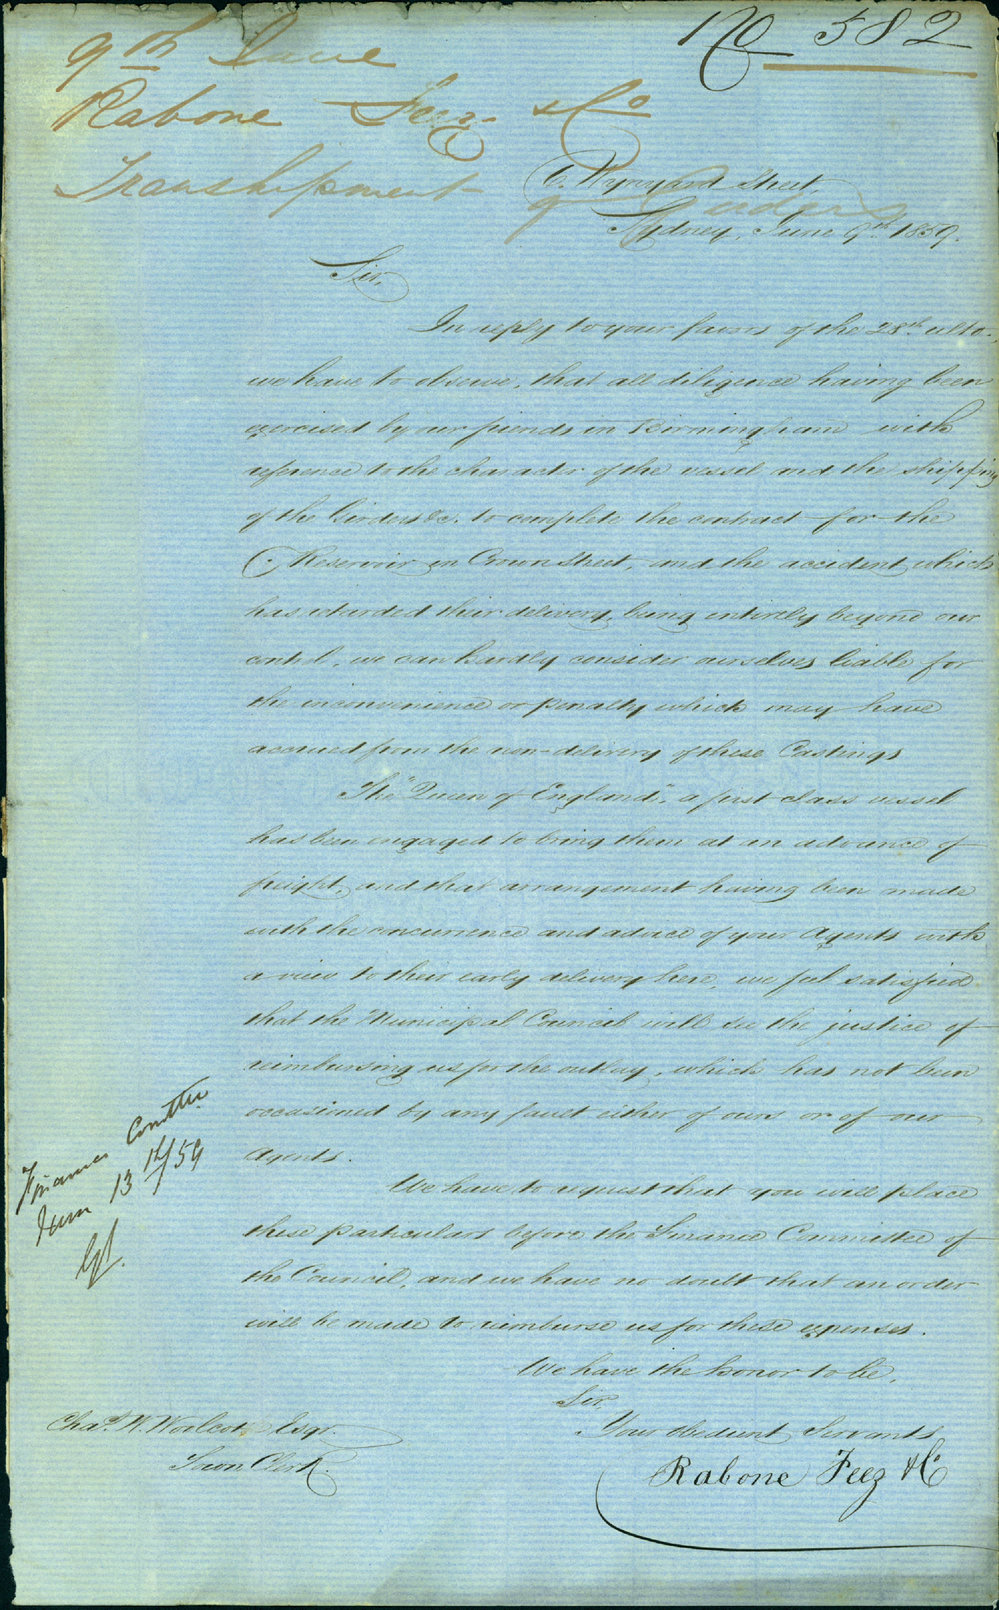 No 582
9th June
Rabone Feez & Co
Transhipment of Girders
Wynyard Street,
Sydney, June 9th 1859.
Sir,
In reply to your favor of the 28th ulto.,
we have to observe, that all diligence having been
exercised by our friends in Birmingham with
reference to the character of the vessel and the shipping
of the Girders &c. to complete the contract for the
Reservoir in Crown Street, and the accident which
has retarded their delivery, being entirely beyond our
control, we can hardly consider ourselves liable for
the inconvenience or penalty which may have
accrued from the non-delivery of these Castings
The "Queen of England", a first class vessel
has been engaged to bring them at an advance of
freight, and that arrangement having been made
with the concurrence and advice of your Agents with
a view to their early delivery here, we feel satisfied
that the Municipal Council will see the justice of
reimbursing us for the outlay, which has not been
occasioned by any fault either of ours or of our
Agents.
We have to request that you will place
these particulars before the Finance Committee of
the Council, and we have no doubt that an order
will be made to reimburse us for these expenses.
We have the honor to be,
Sir,
Your obedient Servants
Rabone Feez & Co
Chas. H. Woolcott Esqr.
Town Clerk.
Finance Comttee
June 13th/59